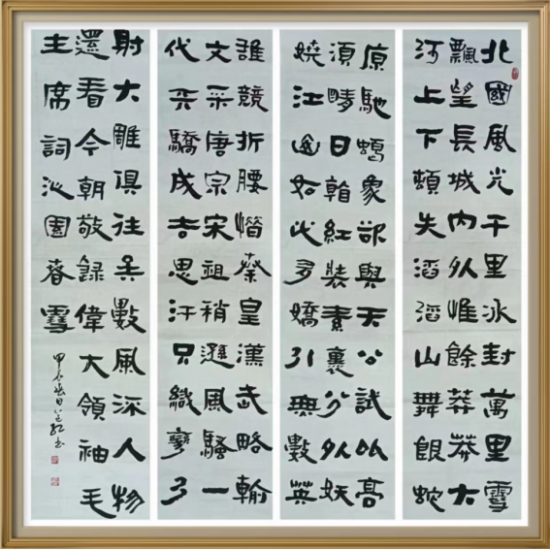 北國風光千里冰封萬里雪
飄望長城內外惟餘莽莽大
河上下頓失滔滔山舞銀蛇
原馳蠟象欲與天公試比高
須晴日看紅裝素裹分外妖
嬈江山如此多嬌引無數英
雄競折腰惜秦皇漢武略輸
文采唐宗宋祖稍遜風騷一
代天驕成吉思汗只識彎弓
射大雕俱往矣數風流人物
還看今朝敬錄偉大領袖毛
主席詞沁園春雪
甲辰春日